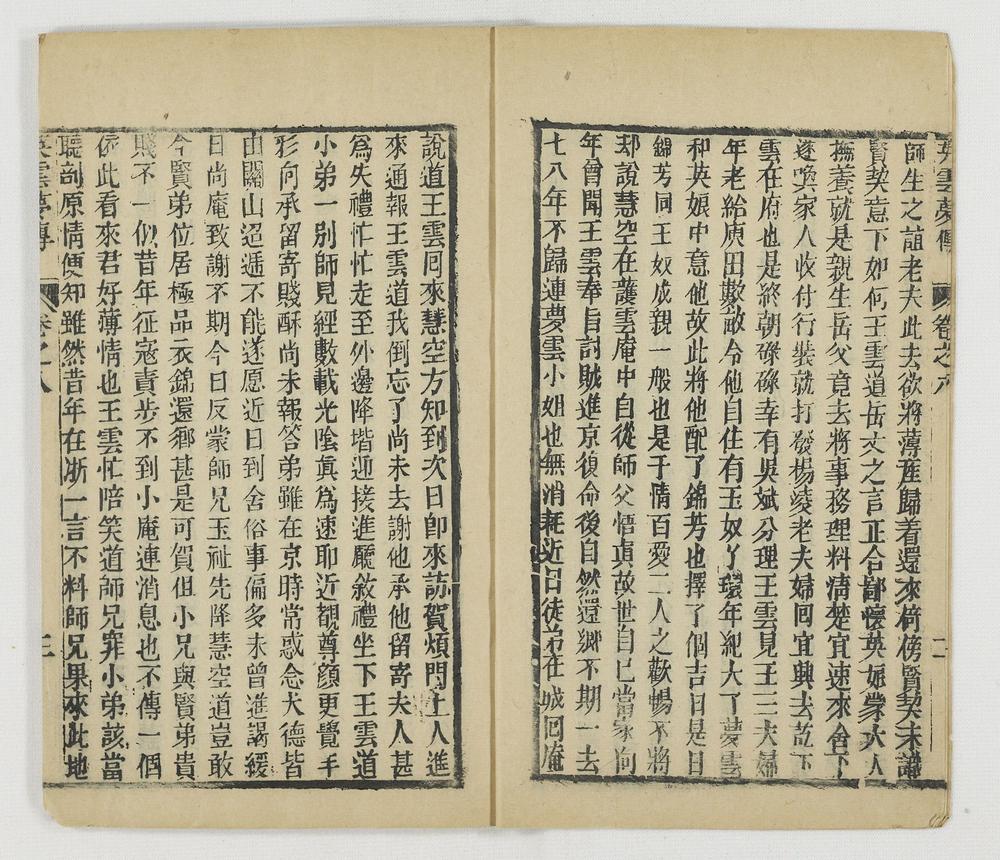 英雲夢傳 卷之八 二
師生之誼老夫此去欲將薄産歸着還來倚傍賢契未識
賢契意下如何王雲道岳丈之言正合鄙懷英娘蒙大人
撫養就是親生岳父竟去將事務理料清楚宜速來舍下
遂喚家人收付行裝就打發楊凌老夫婦回宜興去訖下
雲在府也是終朝碌碌幸有吳斌分理王雲見王三夫婦
年老給庾田數畝令他自住有玉奴丫環年紀大了夢雲
和英娘中意他故此將他配了錦芳也擇了個吉日是日
錦芳同玉奴成親一般也是千情百愛二人之歡暢不將
却說慧空在護雲庵中自從師父悟真故世自已當家向
年曾聞王雲奉旨討賊進京復命後自然還鄉不期一去
七八年不歸連夢雲小姐也無消耗近日徒弟在城回庵
說道王雲回來慧空方知到次日即來訪賀煩門上人進
來通報王雲道我倒忘了尚未去謝他承他留寄夫人甚
為失禮忙忙走至外邊降堦迎接進廳敘禮坐下王雲道
小弟一別師兄經數載光陰真為速耶近覩尊顏更覺手
彩向承留寄賤酥尚未報答弟雖在京時常感念大德皆
由關山迢遞不能遂愿近日到舍俗事偏多未曾進謁緩
日尚庵致謝不期今日反蒙師兄玉祉先降慧空道豈敢
今賢弟位居極品衣錦還鄉甚是可賀但小兄與賢弟貴
賤不一似昔年征寇責步不到小庵連消息也不傳一個
依此看來君好薄情也王雲忙陪笑道師兄罪小弟該當
聽剖原情便知雖然昔年在浙一言不料師兄果來此地
英雲夢傳 卷之八 三